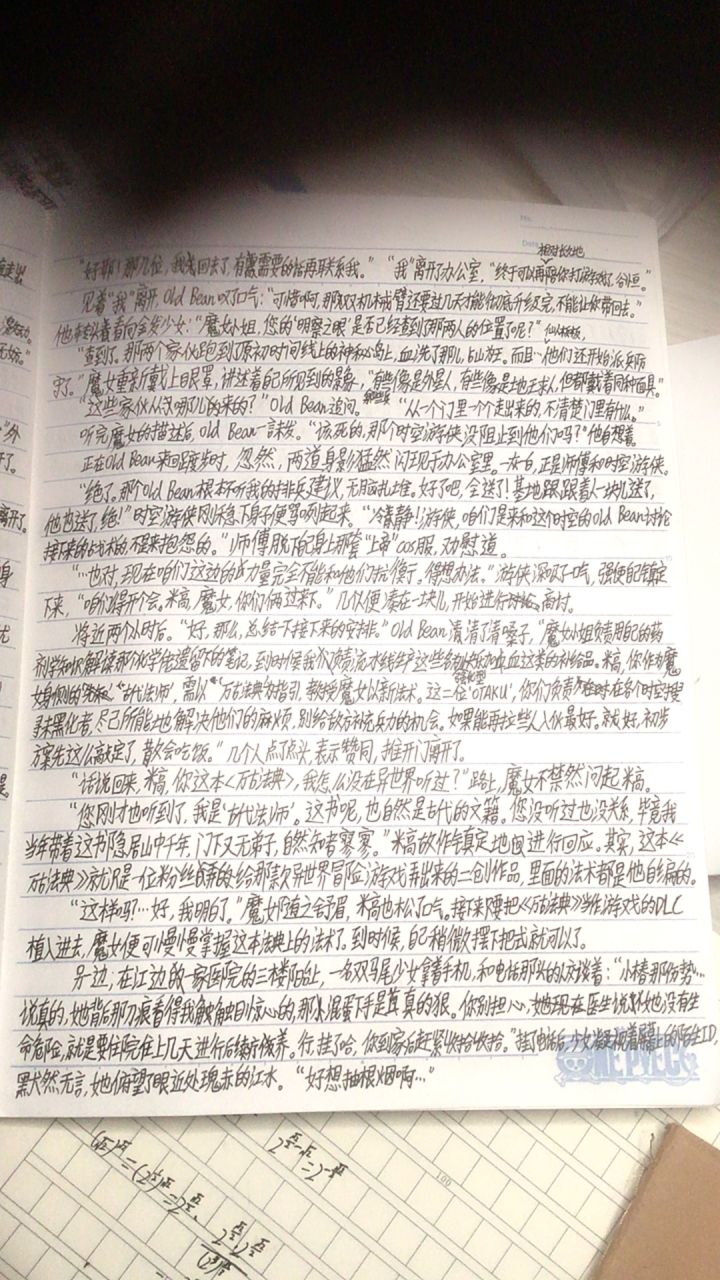 No.
Date
相对长久地
“好耶！那几位，我先回去了，有需要的话再联系我。” “我”离开了办公室，“终于可以再陪你打游戏了，谷恒。”
见着“我”离开，Old Bean叹了口气：“可惜啊，那双机械臂还要过几天才能彻底升级完，不能让你带回去。”
他转头看着向金发少女：“魔女小姐，您的‘明察之眼’是否已经查到了那两人的位置了呢？”
“查到了，那两个家伙跑到了原初时间线上的神秘岛上，血洗了那儿，占山为王。而且…他们还开始派兵防
守了。”魔女重新戴上眼罩，讲述着自己所见到的景象，“有些像是外星人，有些像是地球人，但都戴着同种面具。”
“这些家伙从哪儿的来的？”Old Bean追问。 “从一个门里一个个走出来的，不清楚门里有什么。”
听完魔女的描述后，Old Bean一言未发。“该死的，那个时空游侠没阻止到他们吗？”他自想着。
正在Old Bean来回踱步时，忽然，两道身影猛然闪现于办公室里。一灰一白，正是师傅和时空游侠。
“绝了，那个Old Bean根本不听我的排兵建议，无脑乱堆。好了吧，全送了！基地跟着人一块儿送了，
他也送了，绝！”时空游侠刚稳下身子便骂咧起来。“冷静！游侠，咱们是来和这个时空的Old Bean讨论
接下来的战术的，不是来抱怨的。”师傅脱下自己身上那套“上帝”cos服，劝慰道。
“…也对，现在咱们这边的力量完全不能和他们抗衡了。得想办法。”游侠深吸了一口气，强使自己镇定
下来，“咱们得开个会。米高，魔女，你们俩过来下。”几人便凑在一块儿，开始进行商讨。
将近两个小时后。“好，那么，总结下接下来的安排。”Old Bean清清了清嗓子，“魔女小姐负责用自己的药
剂学知识解读那个化学佬遗留下的笔记，到时候我们负责流水线生产这些
米高，你作为魔
女身侧的‘古代法师’，需以‘万古法典’为指引，教授魔女以新法术。这二位‘OTAKU’，你们负责在各个时空搜
寻未黑化者，尽己所能地解决他们的麻烦，别给敌方补充兵力的机会。如果能再拉些人入伙最好。就好，初步
方案先这么敲定了，散会吃饭。”几个人点了点头，表示赞同，推开门离开了。
“话说回来，米高，你这本《万古法典》，我怎么没在异世界听过？”路上，魔女不禁然问起米高。
“您刚才也听到了，我是‘古代法师’。这书呢，也自然是古代的文籍。您没听过也没关系，毕竟我
当年带着这书隐居山中千年，门下又无弟子，自然知者寥寥。”米高故作镇定地进行回应。其实，这本《
万古法典》就只是一位粉丝给那款异世界冒险游戏弄出来的二创作品，里面的法术都是他自编的。
“这样吗？…好，我明白了。”魔女随之舒眉，米高也松了口气。接下来只要把《万古法典》当作游戏的DLC
植入进去，魔女便可慢慢掌握这本法典上的法术了。到时候，自己稍微摆下把式就可以了。
另一边，在江边的一家医院的三楼阳台上，一名双马尾少女拿着手机，和电话那头的人交谈着：“小椿那伤势…
说真的，她背后那刀痕看得我触目惊心的，那混蛋下手是真的狠。你别担心，她现在医生说她没有生
命危险，就是要住院住上几天进行后续疗养。行，挂了哈，你到家后赶紧收拾收拾。”挂了电话后，少女凝视着屏幕上的陌生ID，
默然无言，她俯望了眼近处瑰赤的江水。“好想抽根烟啊…”
ONE PIECE
100